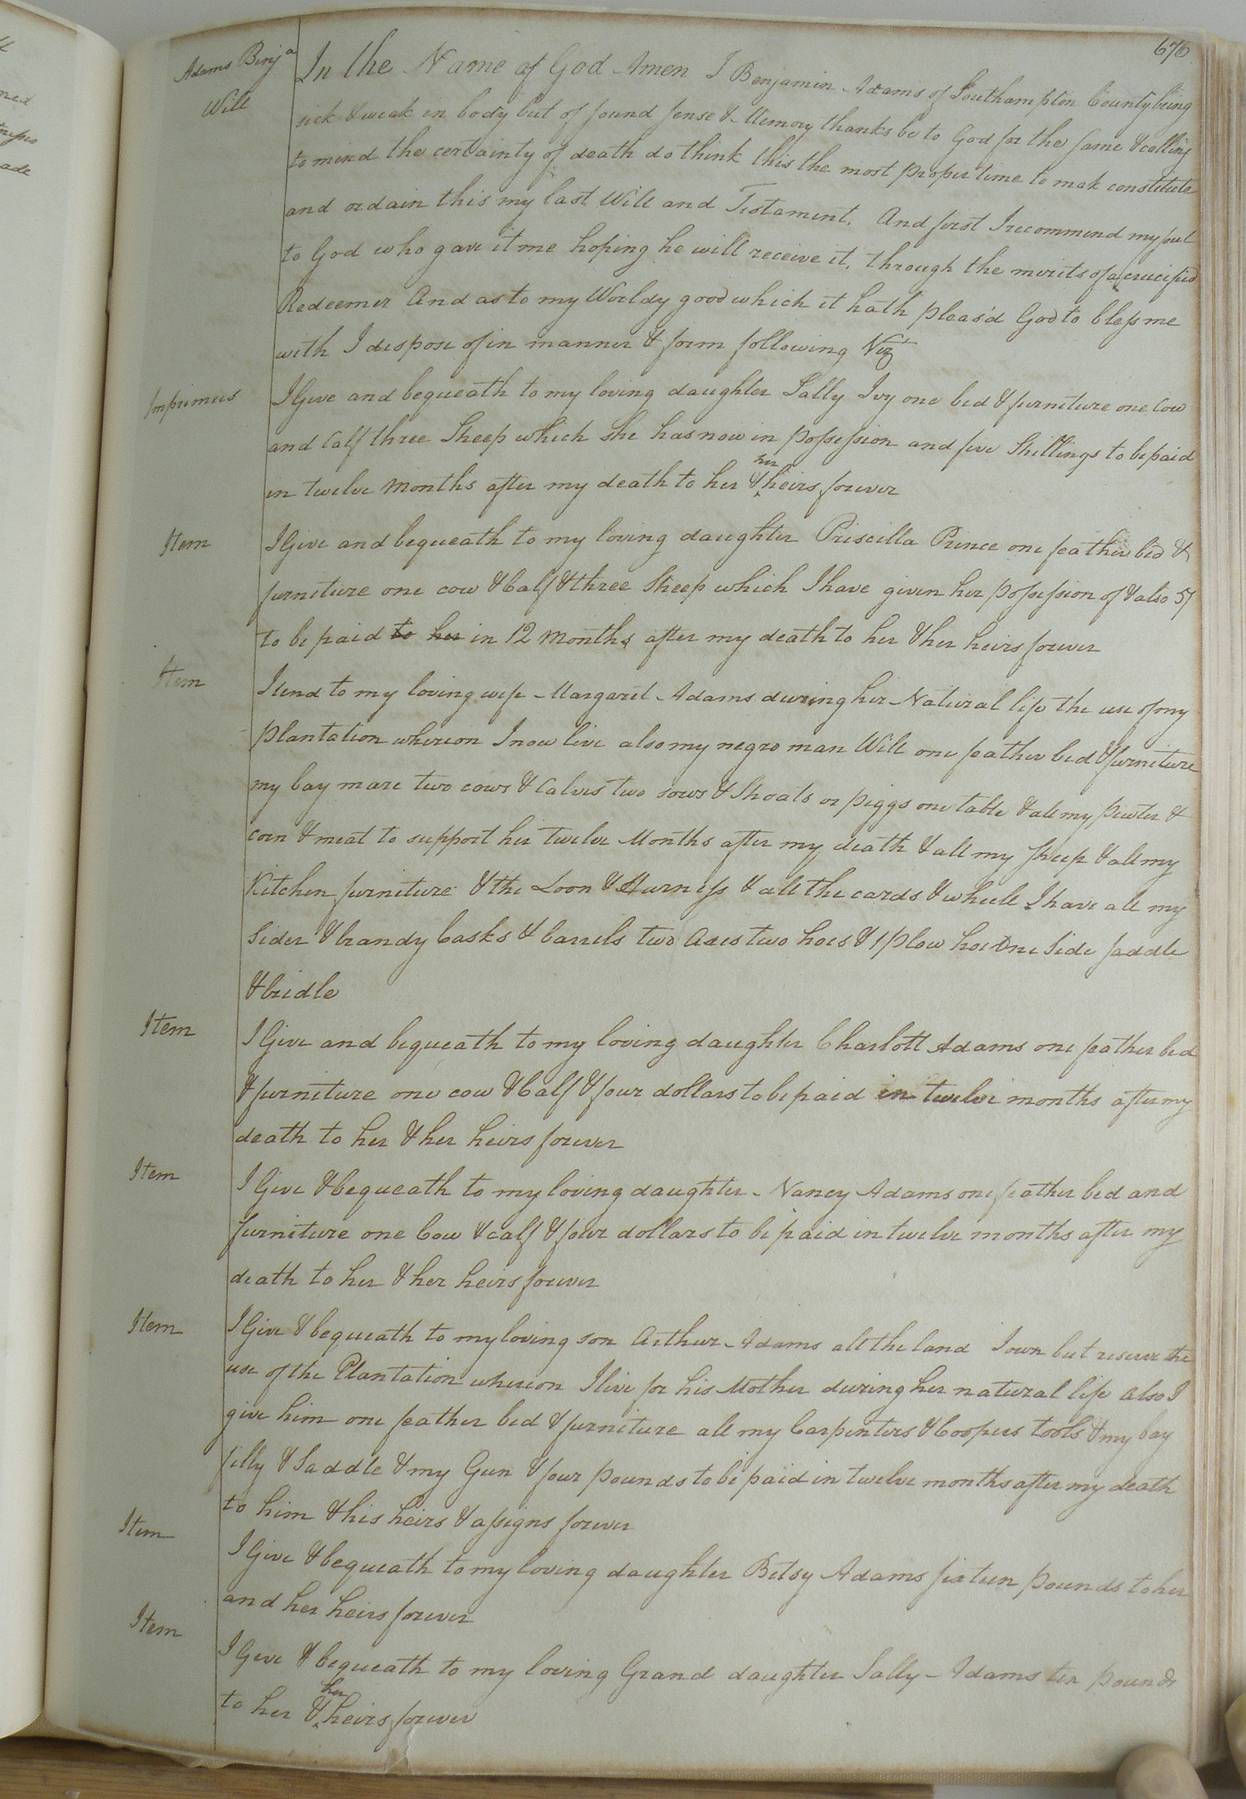 676
Adams Benja
Will
In the Name of God Amen I Benjamin Adams of Southampton County being
sick & weak in body but of sound sense & Memory thanks be to God for the same & calling
to mind the certainty of death do think this the most proper time to mak constitute
and ordain this my last Will and Testament. And first I recommend my soul
to God who gave it me hoping he will receive it, through the merits of a crucified
Redeemer And as to my Worldy good which it hath pleas'd God to bless me
with I dispose of in manner & form following Viz
Imprimus
I Give and bequeath to my loving daughter Sally Ivy one bed & furniture one Cow
and Calf three Sheep which she has now in possession and five Shillings to be paid
in twelve Months after my death to her & her heirs forever
Item
I Give and bequeath to my loving daughter Priscilla Prince one feather bed &
furniture one cow & Calf & three Sheep which I have given her possession of & also 5/
to be paid to her in 12 Months after my death to her & her heirs forever
Item
I lend to my loving wife Margaret Adams during her Natural life the use of my
Plantation whereon I now live also my negro man Will one feather bed & furniture
my bay mare two cows & Calves two sows & Shoats or piggs one table & all my Pewter &
corn & meat to support her twelve Months after my death & all my sheep & all my
Kitchen furniture & the Loon & Hurness & all the cards & wheele I have all my
Sider & brandy Casks & barrels two Axes two hoes & 1 plow hoe One Side saddle
& bridle
Item
I Give and bequeath to my loving daughter Charlott Adams one feather bed
& furniture one cow & Calf & four dollars to be paid in twelve months after my
death to her & her heirs forever
Item
I Give & bequeath to my loving daughter Nancy Adams one feather bed and
furniture one Cow & calf & four dollars to be paid in twelve months after my
death to her & her heirs forever
Item
I Give & bequeath to my loving son Arthur Adams all the land I own but reserve the
use of the Plantation whereon I live for his Mother during her natural life also I
give him one feather bed & furniture all my Carpenters & Coopers tools & my bay
filly & Saddle & my Gun & four pounds to be paid in twelve months after my death
to him & his heirs & assigns forever
Item
I Give & bequeath to my loving daughter Betsy Adams sixteen pounds to her
and her heirs forever
Item
I Give & bequeath to my loving Grand daughter Sally Adams ten pounds
to her & her heirs forever